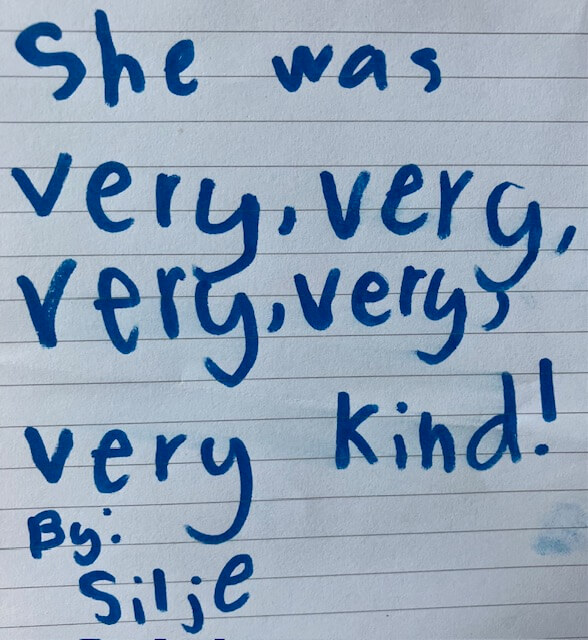 She was
very, very,
very, very,
very kind!
By:
Silje